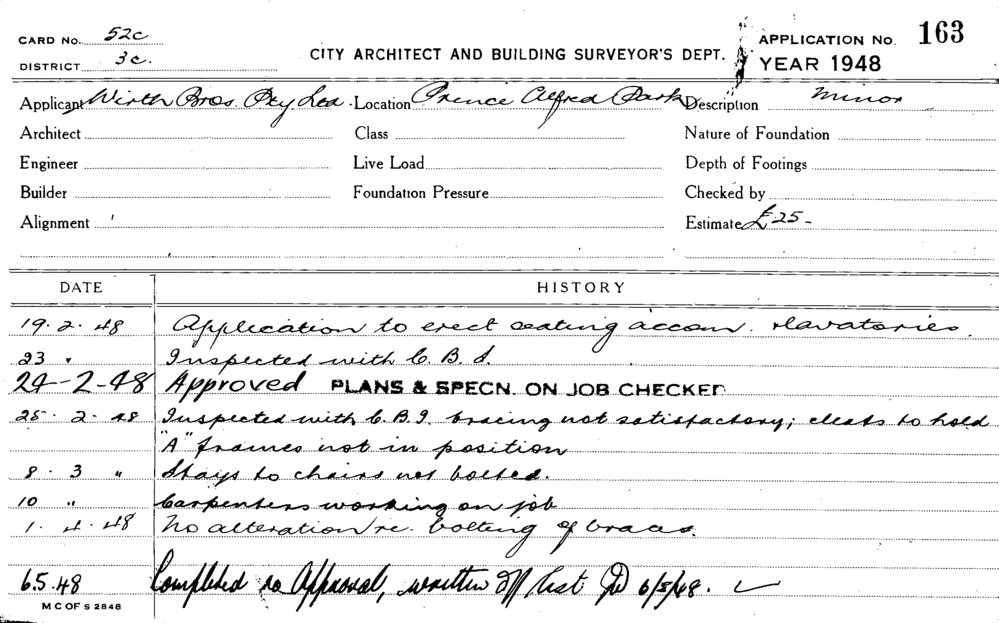 CARD No. 52c
DISTRICT 3c.
CITY ARCHITECT AND BUILDING SURVEYOR'S DEPT.
APPLICATION No. 163
YEAR 1948
Applicant Wirth Bros. Pty Ltd. Location Prince Alfred Park Description Minor
Architect Class Nature of Foundation
Engineer Live Load Depth of Footings
Builder Foundation Pressure Checked by
Alignment Estimate £25-
DATE HISTORY
19.2.48 Application to erect seating accom. & lavatories.
23 " Inspected with C.B.I.
24-2-48 Approved PLANS & SPECN. ON JOB CHECKED
25.2.48 Inspected with C.B.I. bracing not satisfactory; cleats to hold
"A" frames not in position
8.3 " Stays to chairs not bolted.
10 " Carpenters working on job
1.4.48 No alteration re. bolting of braces.
6.5.48 Completed as Approval, written off list 6/5/48.
M C OF S 2848